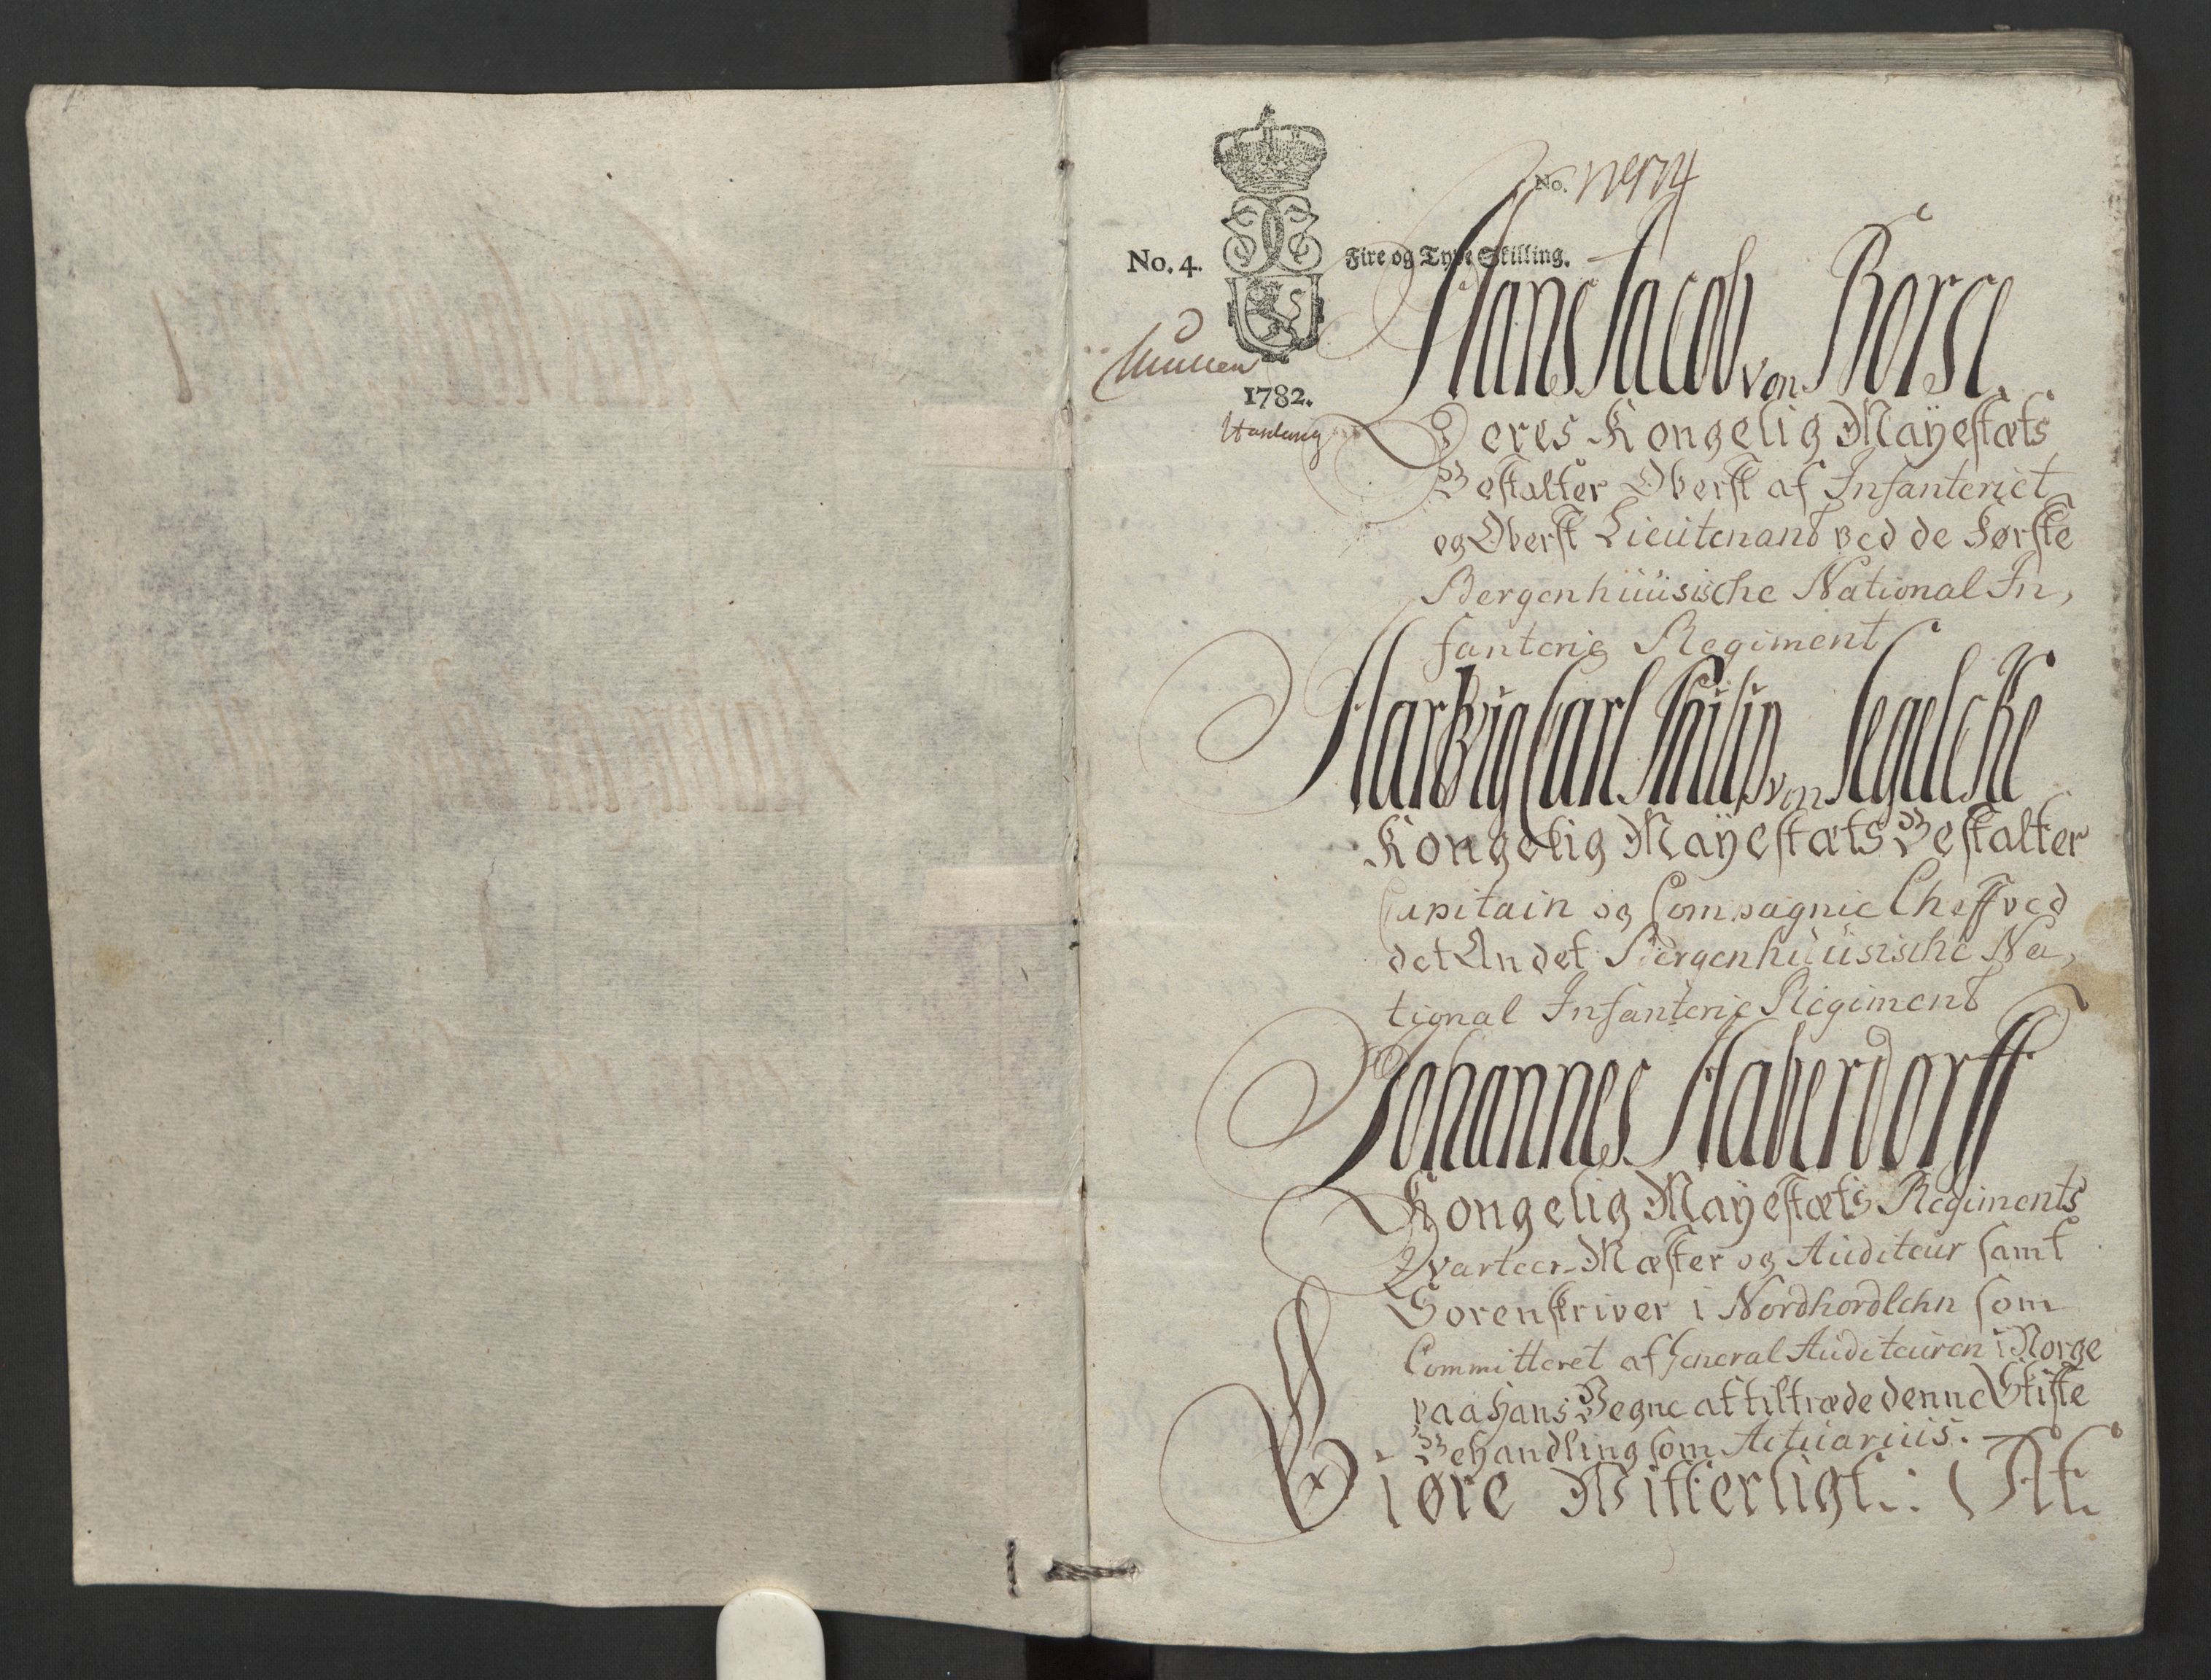 No.
No. 4.
Fire og Tyve Skilling.
1782.
Hans Jacob von Borse
Deres Kongelig Mayestæts
Bestalter Oberst af Infanteriet
og Oberst Lieutenant ved de Første
Bergenhuusische National In,
fanterie Regiment
Hartvig Carl Philip von Segelcke
Kongelig Mayestæts Bestalter
Capitain og Compagnie Cheff ved
det Andet Bergenhuusische Na,
tional Infanterie Regiment
Johannes Haberdorff
Kongelig Mayestæts Regiments
Qvarteer-Mæster og Auditeur samt
Sorenskriver i Nordhordlehn som
Committeret af General Auditeuren i Norge
paa hans Vegne at tiltræde denne Skifte
Behandling som Actuarius.
Giøre Witterligt: At